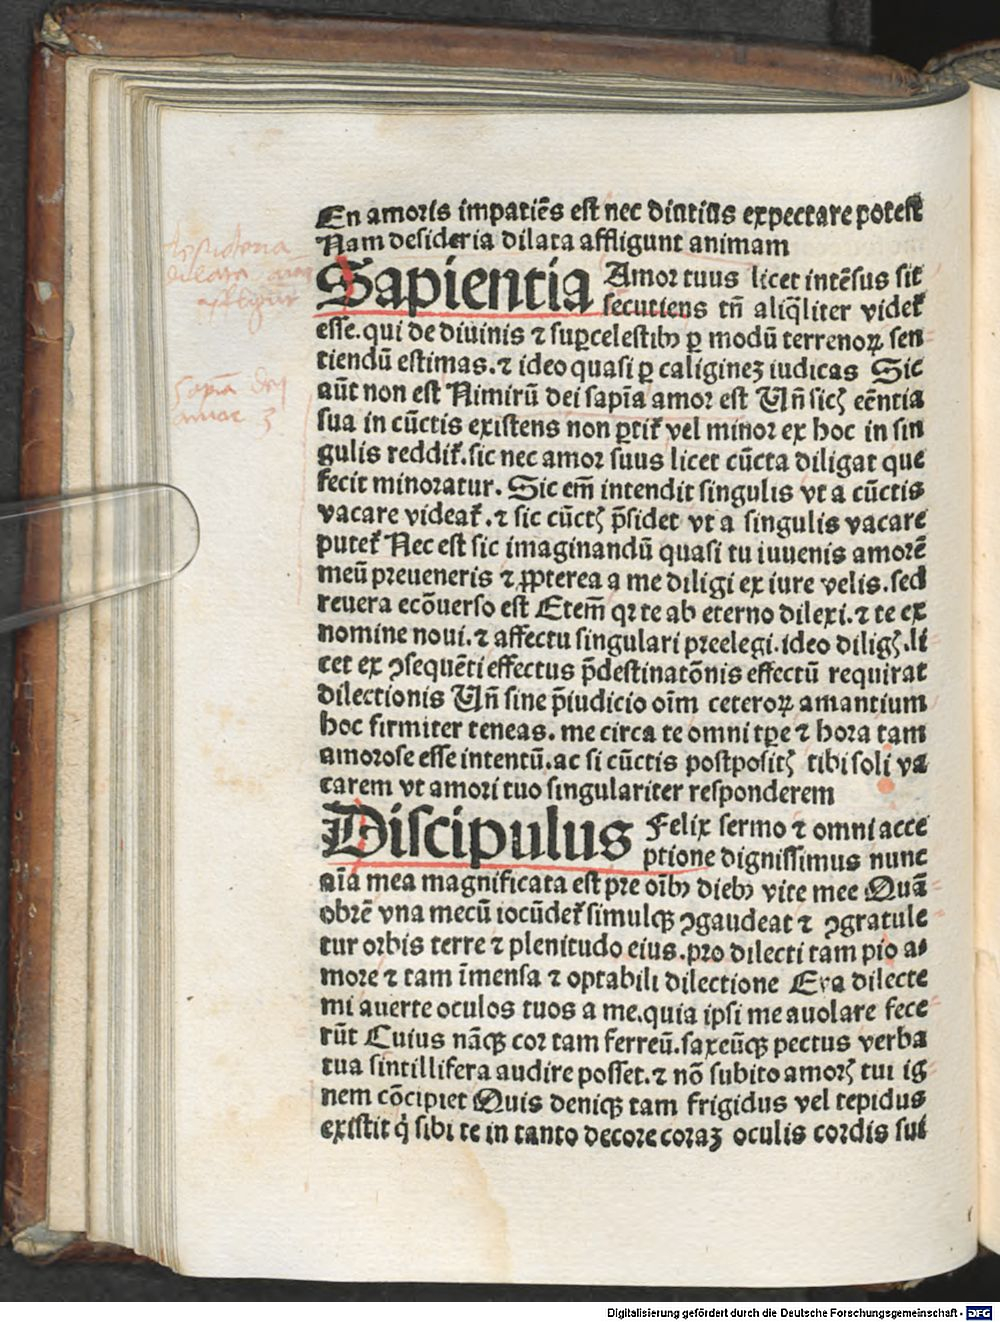 En amoris impatiēs est nec diutius expectare potest
Nam desideria dilata affligunt animam
Sapientia Amor tuus licet intēsus sit
secutiens tñ aliq̄liter videt̄
esse. qui de diuinis ⁊ suꝑcelestibꝫ ꝑ modū terrenoꝝ sen
tiendū estimas. ⁊ ideo quasi ꝑ caliginez iudicas Sic
aūt non est Nimirū dei sapīa amor est Vñ sicꝭ eēntia
sua in cūctis existens non ꝑtit̄ vel minor ex hoc in sin
gulis reddit̄. sic nec amor suus licet cūcta diligat que
fecit minoratur. Sic em̄ intendit singulis vt a cūctis
vacare videat̄. ⁊ sic cūctꝭ p̄sidet vt a singulis vacare
putet̄ Nec est sic imaginandū quasi tu iuuenis amorē
meū preueneris ⁊ ꝓpterea a me diligi ex iure velis. sed
reuera ecōuerso est Etem̄ qꝛ te ab eterno dilexi. ⁊ te ex
nomine noui. ⁊ affectu singulari preelegi. ideo diligꝭ. li
cet ex ꝯsequēti effectus p̄destinatōnis effectū requirat
dilectionis Vñ sine p̄iudicio oīm ceteroꝝ amantium
hoc firmiter teneas. me circa te omni tꝑe ⁊ hora tam
amorose esse intentū. ac si cūctis postpositꝭ tibi soli va
carem vt amori tuo singulariter responderem
Discipulus Felix sermo ⁊ omni acce
ptione dignissimus nunc
aīa mea magnificata est pre oībꝫ diebꝫ vite mee Quā
obrē vna mecū iocūdet̄ simulqꝫ ꝯgaudeat ⁊ ꝯgratule
tur orbis terre ⁊ plenitudo eius. pro dilecti tam pio a⸗
more ⁊ tam īmensa ⁊ optabili dilectione Eya dilecte
mi auerte oculos tuos a me. quia ipsi me auolare fece
rūt Cuius nāqꝫ cor tam ferreū. saxeūqꝫ pectus verba
tua sintillifera audire posset. ⁊ nō subito amorꝭ tui ig
nem cōcipiet Quis deniqꝫ tam frigidus vel tepidus
existit q̇ sibi te in tanto decore coraz oculis cordis sui
desideria
dilata aīam
affligunt
Sapīa dei
amor ē
Digitalisierung gefördert durch die Deutsche Forschungsgemeinschaft - DFG